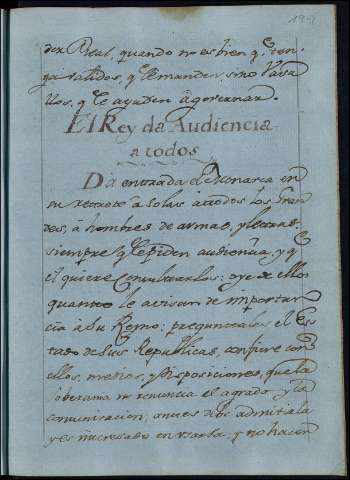 der Real, quando no es bien q.e ten-
ga validos, q.e le manden, sino Vasa-
llos, q.e le ayuden à governar.
El Rey da Audiencia
a todos
Dà entrada el Monarca en
su retrete à solas à todos los Gran
des, à hombres de armas, y letras
siempre q.e le piden audiencia, y q.e
él quiere consultarlos: oye de ellos
quanto le avisan de importan
cia à su Reyno: preguntales el Es-
tado de sus Republicas, confiere con
ellos, medios, y disposiciones, que la
soberania no renuncia el agrado y la
comunicacion, antes debe admitirla
y es interesado en usarla, y no hacen